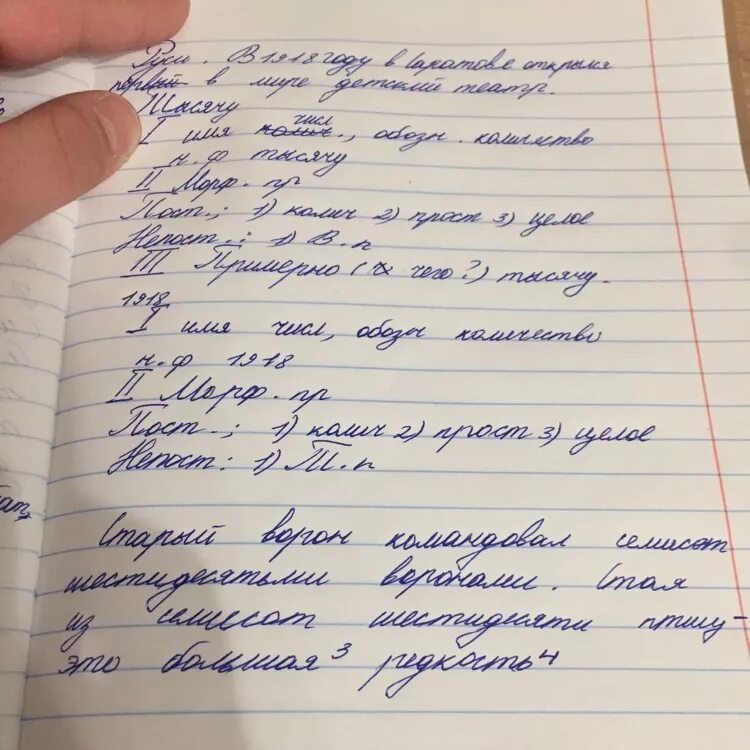 Руси. В 1918 году в Саратове открыли
первый в мире детский театр.
Тысячу
числ
I имя колич., обозн. количество
н.ф тысячу
II Морф. пр
Пост.; 1) колич 2) прост 3) целое
Непост.: 1) В.п
III Примерно (чего?) тысячу.
1918
I имя числ, обозн количество
н.ф 1918
II Морф. пр
Пост.; 1) колич 2) прост 3) целое
Непост: 1) Т.п
Старый ворон командовал семисот
шестидесятьми воронами. Стая
из семисот шестидесяти птиц-
это большая³ редкость⁴